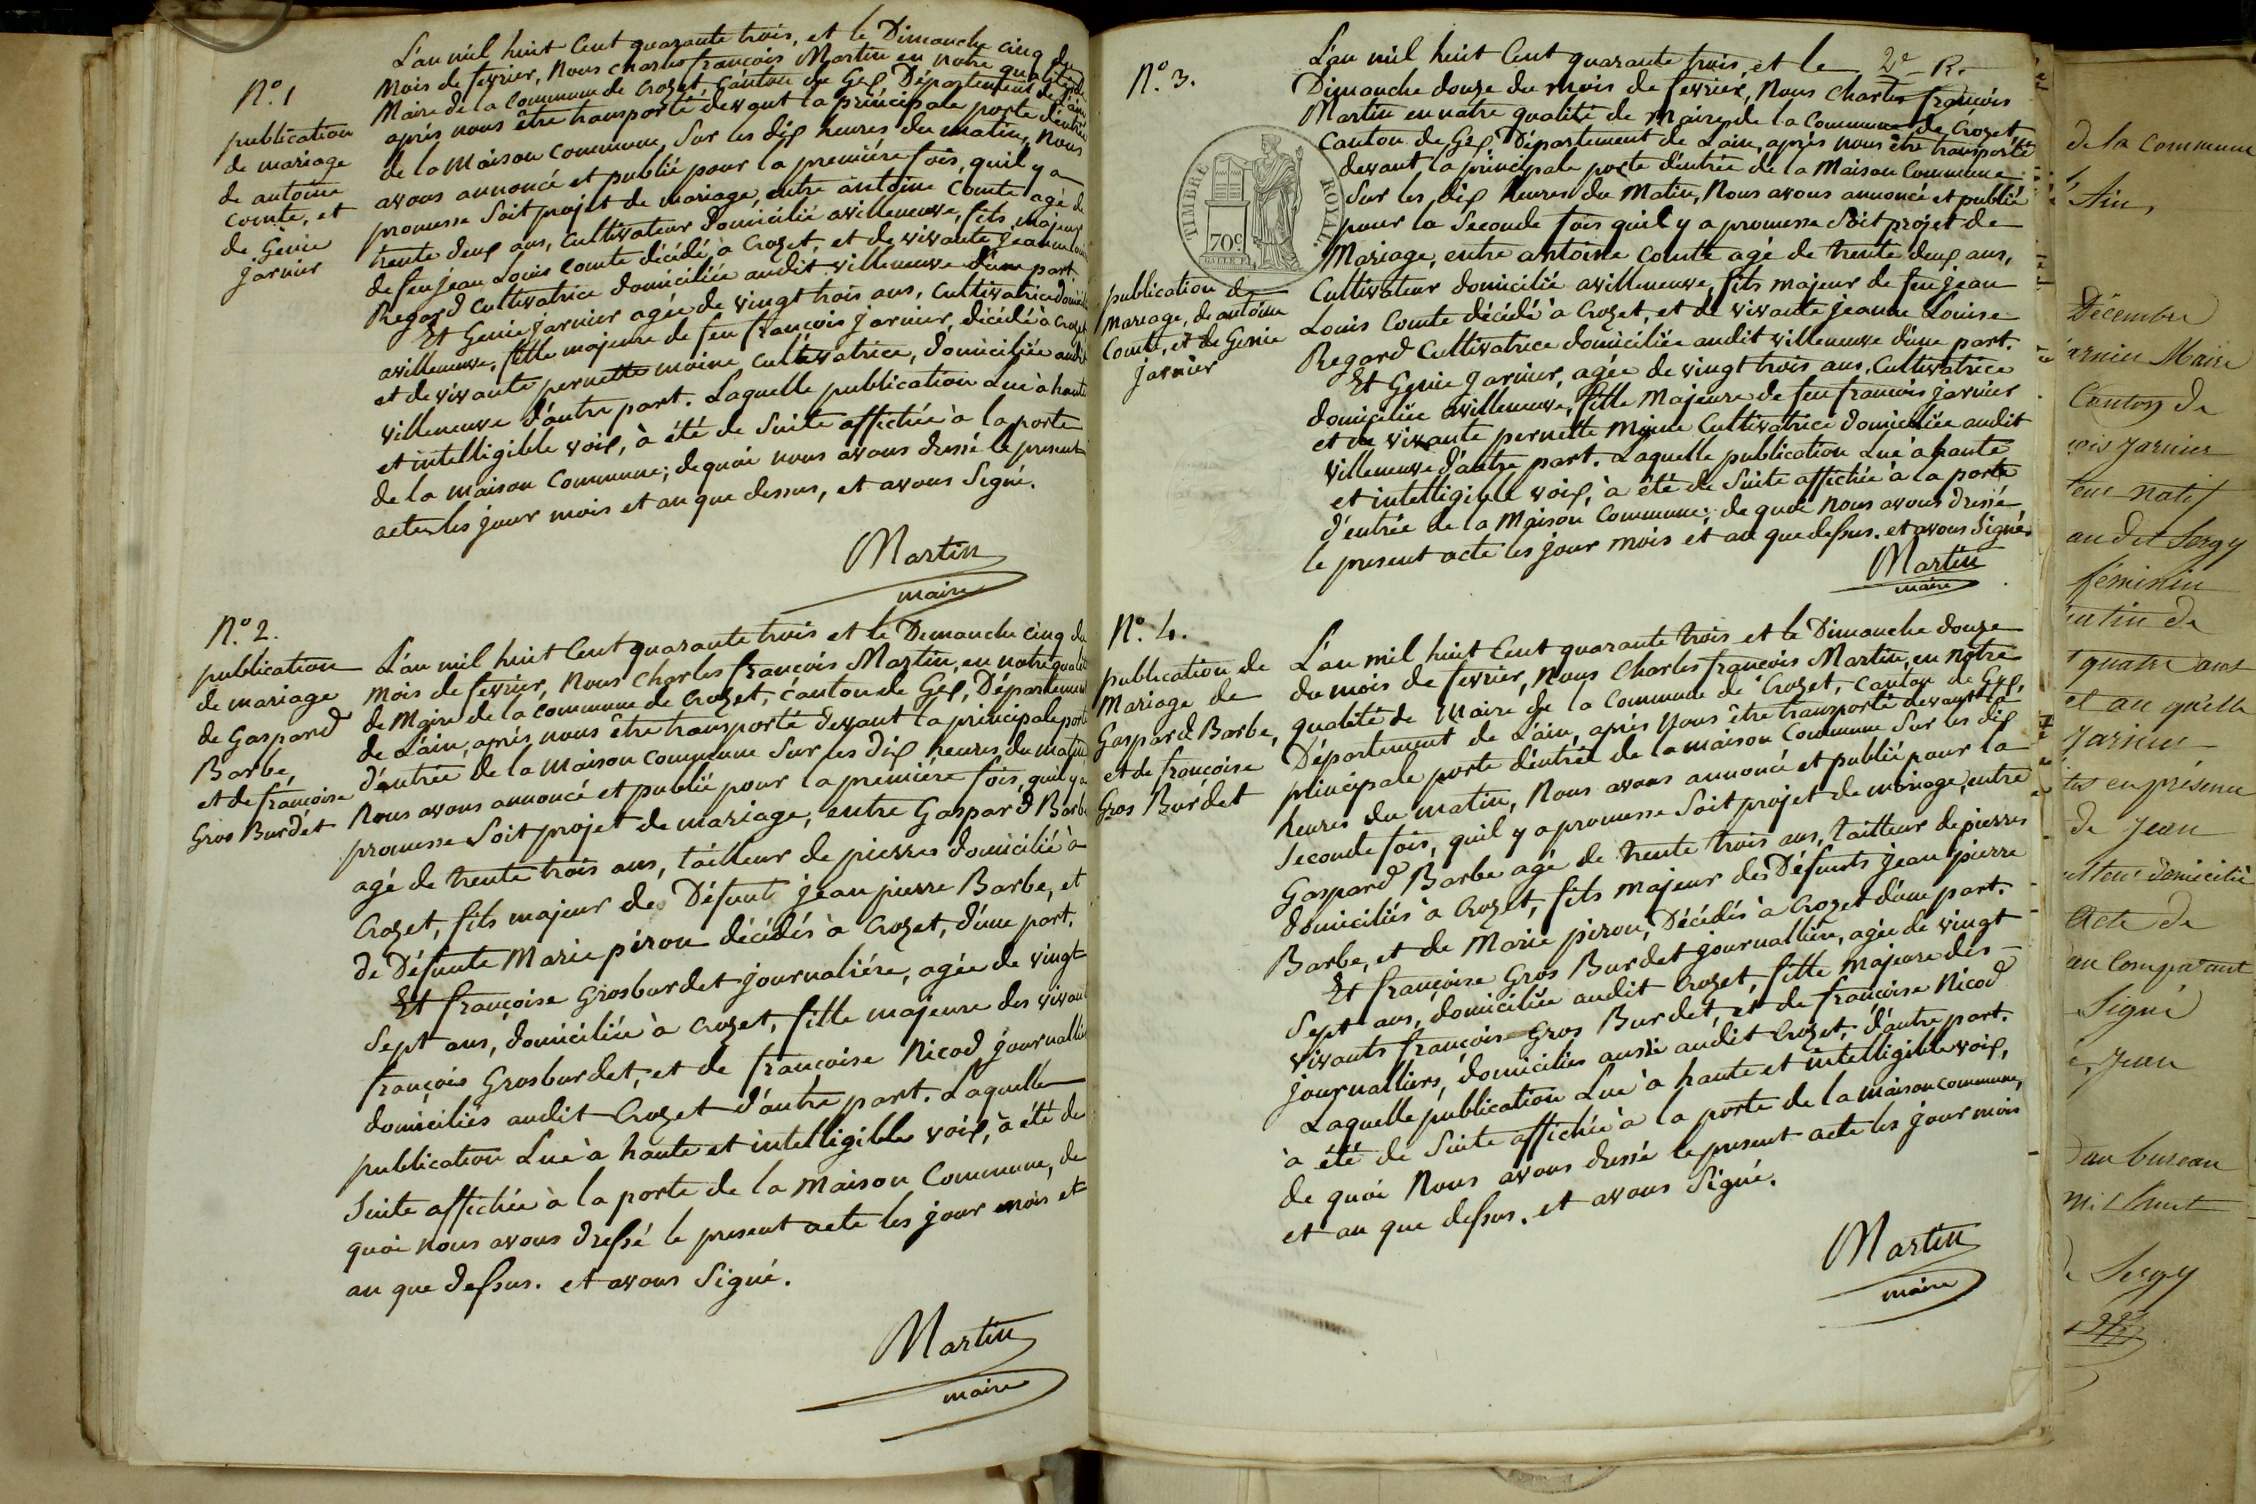 N.º 1
publication
de mariage
de antoine
comte, et
de Génie
jarnier
L'an mil huit Cent quarante trois, et le Dimanche cinq du
Mois de fevrier, Nous Charles françois Martin en notre qualité de
Maire de la Commune de Crozet, Canton de Gex, Département de L'ain,
aprés nous être transporté devant la principale porte d'entrée
de la Maison Commune, Sur les dix heures du matin, Nous
avons annoncé et publié pour la premiére fois, quil y a
promesse Soit projet de mariage, entre antoine Comte agé de
trente deux ans, Cultivateur domicilié avilleneuve, fils majeur
de feu jean Louis Comte décédé à Crozet, et de vivante jeanne Louise
Regard Cultivatrice domiciliée audit villeneuve d'une part.
Et Genie jarnier agée de vingt trois ans, Cultivatrice domiciliée
avilleneuve, fille majeure de feu françois jarnier, décédé à Crozet
et de vivante pernette moine Cultivatrice, domiciliée audit
villeneuve d'autre part. Laquelle publication Lue à haute
et intelligible voix, à été de Suite affichée à la porte
de la maison Commune; dequoi nous avons dressé le present
acte les jour mois et an que dessus, et avons Signé.
Martin
maire
N.º 2.
publication
de mariage
de Gaspard
Barbe,
et de françoise
Gros Burdet
L'an mil huit Cent quarante trois et le Demanche cinq du
Mois de fevrier, Nous Charles françois Martin, en notre qualité
de Maire de la Commune de Crozet, canton de Gex, Département
de L'ain, aprés nous être transporté devant la principale porte
d'entrée de la Maison Commune Sur les dix heures du matin
Nous avons annoncé et publié pour la premiére fois, quil y a
promesse Soit projet de mariage, entre Gaspard Barbe
agé de trente trois ans, tailleur de pierres domicilié à
Crozet, fils majeur de Défunt jean pierre Barbe, et
de Défunte Marie piron décédés à Crozet, d'une part.
Et françoise Grosburdet journaliére, agée de vingt
Sept ans, domiciliée à Crozet, fille majeure des vivants
françois Grosburdet, et de françoise Nicod journalliers
domiciliés audit Crozet d'autre part. Laquelle
publication Lue à haute et intelligible voix, à été de
Suite affichée à la porte de la Maison Commune, de
quoi nous avons dressé le present acte les jour mois et
an que dessus. et avons Signé.
Martin
maire
2e R.
N.º 3.
TIMBRE ROYAL.
70c.
publication de
Mariage, de antoine
Comte, et de Genie
jarnier
L'an mil huit Cent quarante trois, et le
Dimanche douze du mois de fevrier, Nous Charles françois
Martin en notre qualité de Maire de la Commune de Crozet
Canton de Gex Département de L'ain, aprés nous être transporté
devant la principale porte d'entrée de la Maison Commune
Sur les dix heures du Matin, Nous avons annoncé et publié
pour la Seconde fois quil y a promesse Soit projet de
Mariage, entre antoine Comte agé de trente deux ans,
Cultivateur domicilié avilleneuve, fils majeur de feu jean
Louis Comte décédé à Crozet, et de vivante jeanne Louise
Regard Cultivatrice domiciliée audit villeneuve d'une part.
Et Genie jarnier, agée de vingt trois ans, Cultivatrice
domiciliée avilleneuve, fille Majeure de feu françois jarnier
et de vivante pernette Moine Cultivatrice domiciliée audit
villeneuve d'autre part. Laquelle publication Lue à haute
et intelligible voix, à été de Suite affichée à la porte
d'entrée de la Maison Commune; de quoi nous avons dressé
le present acte les jour mois et an que dessus. et avons Signé
Martin
maire
N.º 4.
publication de
Mariage de
Gaspard Barbe,
et de françoise
Gros Burdet
L'an mil huit Cent quarante trois et le Dimanche douze
du mois de fevrier, Nous Charles françois Martin, en notre
qualité de Maire de la Commune de Crozet, Canton de Gex,
Département de L'ain, aprés Nous être transporté devant la
principale porte d'entrée de la maison Commune Sur les dix
heures du matin, Nous avons annoncé et publié pour la
Seconde fois, quil y a promesse Soit projet de mariage, entre
Gaspard Barbe agé de trente trois ans, tailleur de pierres
domiciliés à Crozet, fils majeur des Défunts jean pierre
Barbe, et de Marie piron, Décédés à Crozet d'une part.
Et françoise Gros Burdet journallière, agée de vingt
Sept ans, domiciliée audit Crozet, fille majeure des
vivants françois Gros Burdet, et de françoise Nicod
journalliers, domiciliés aussi audit Crozet, d'autre part.
Laquelle publication Lue à haute et intelligible voix,
à été de Suite affichée à la porte de la maison commune,
de quoi Nous avons dressé le present acte les jour mois
et an que dessus. et avons Signé.
Martin
maire
de la commune
Ain,
Décembre
arnier Maire
Canton de
ois jarnier
natif
audit Sergy
féminin
atin de
quatre ans
et an qu'elle
jarnier
en présence
de Jean
domicilié
Acte de
comparant
Signé
Jean
au bureau
mil huit
Sergy